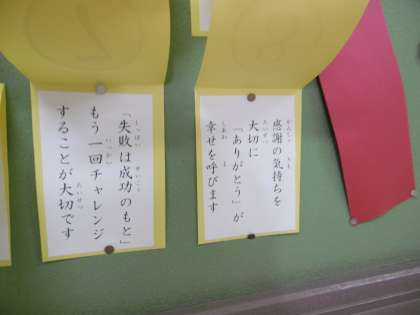 感謝の気持ちを
大切に
「ありがとう」が
幸せを呼びます
「失敗は成功のもと」
もう一回チャレンジ
することが大切です